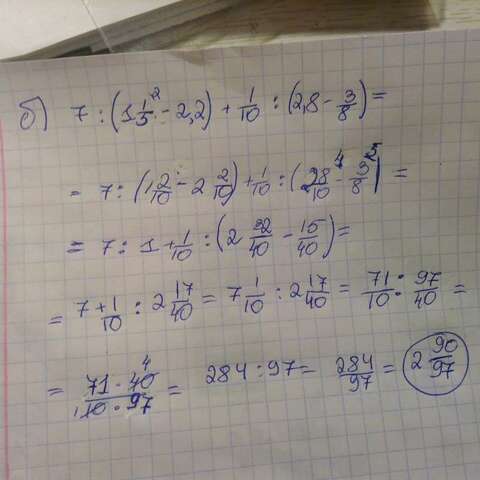 б) 7 : (1 1/5 - 2,2) + 1/10 : (2,8 - 3/8) =
= 7 : (1 2/10 - 2 2/10) + 1/10 : (28/10 - 3/8) =
= 7 : 1 + 1/10 : (2 32/40 - 15/40) =
= 7 + 1/10 : 2 17/40 = 7 1/10 : 2 17/40 = 71/10 : 97/40 =
= 71 · 40/10 · 97 = 284 : 97 = 284/97 = 2 90/97